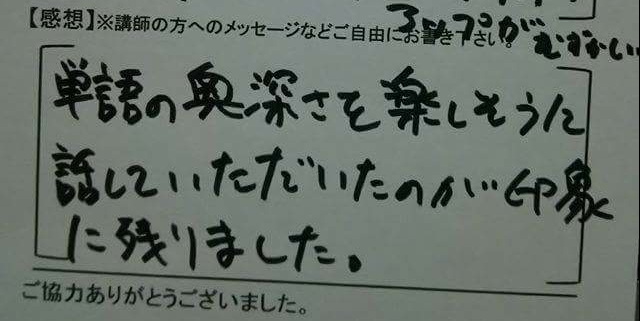 アップがむずかしい
【感想】※講師の方へのメッセージなどご自由にお書き下さい。
単語の奥深さを楽しそうに
話していただいたのが印象
に残りました。
ご協力ありがとうございました。